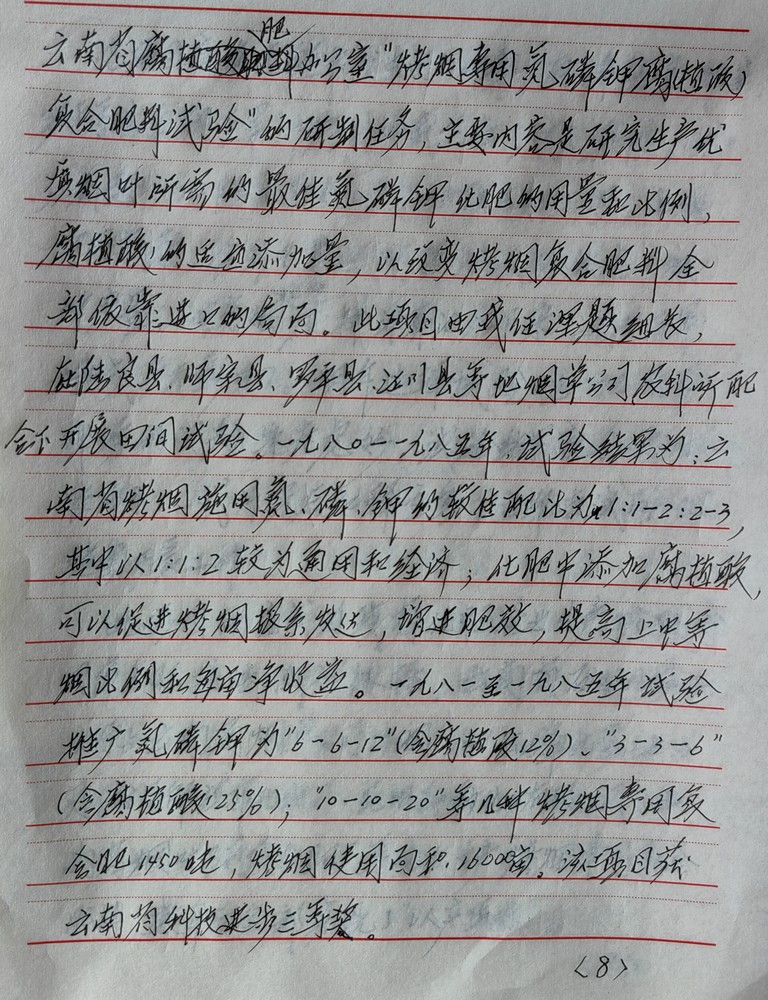 肥
云南省腐植酸肥料办公室"烤烟专用氮磷钾腐(植酸)
复合肥料试验"的研制任务，主要内容是研究生产优
质烟叶所需的最佳氮磷钾化肥的用量和比例，
腐植酸的适应添加量，以改变烤烟复合肥料全
部依靠进口的局面。此项目由我任课题组长，
在陆良县、师宗县、罗平县、江川县等地烟草公司农科所配
合下开展田间试验。一九八〇—一九八五年，试验结果为：云
南省烤烟施用氮、磷、钾的较佳配比为1:1-2:2-3，
其中以1:1:2较为通用和经济；化肥中添加腐植酸，
可以促进烤烟根系发达，增进肥效，提高上中等
烟比例和每亩净收益。一九八一至一九八五年试验
推广氮磷钾为"6-6-12"(含腐植酸12%)、"3-3-6"
(含腐植酸25%)；"10-10-20"等几种烤烟专用复
合肥1450吨，烤烟使用面积16000亩。该项目获
云南省科技进步三等奖。
<8>